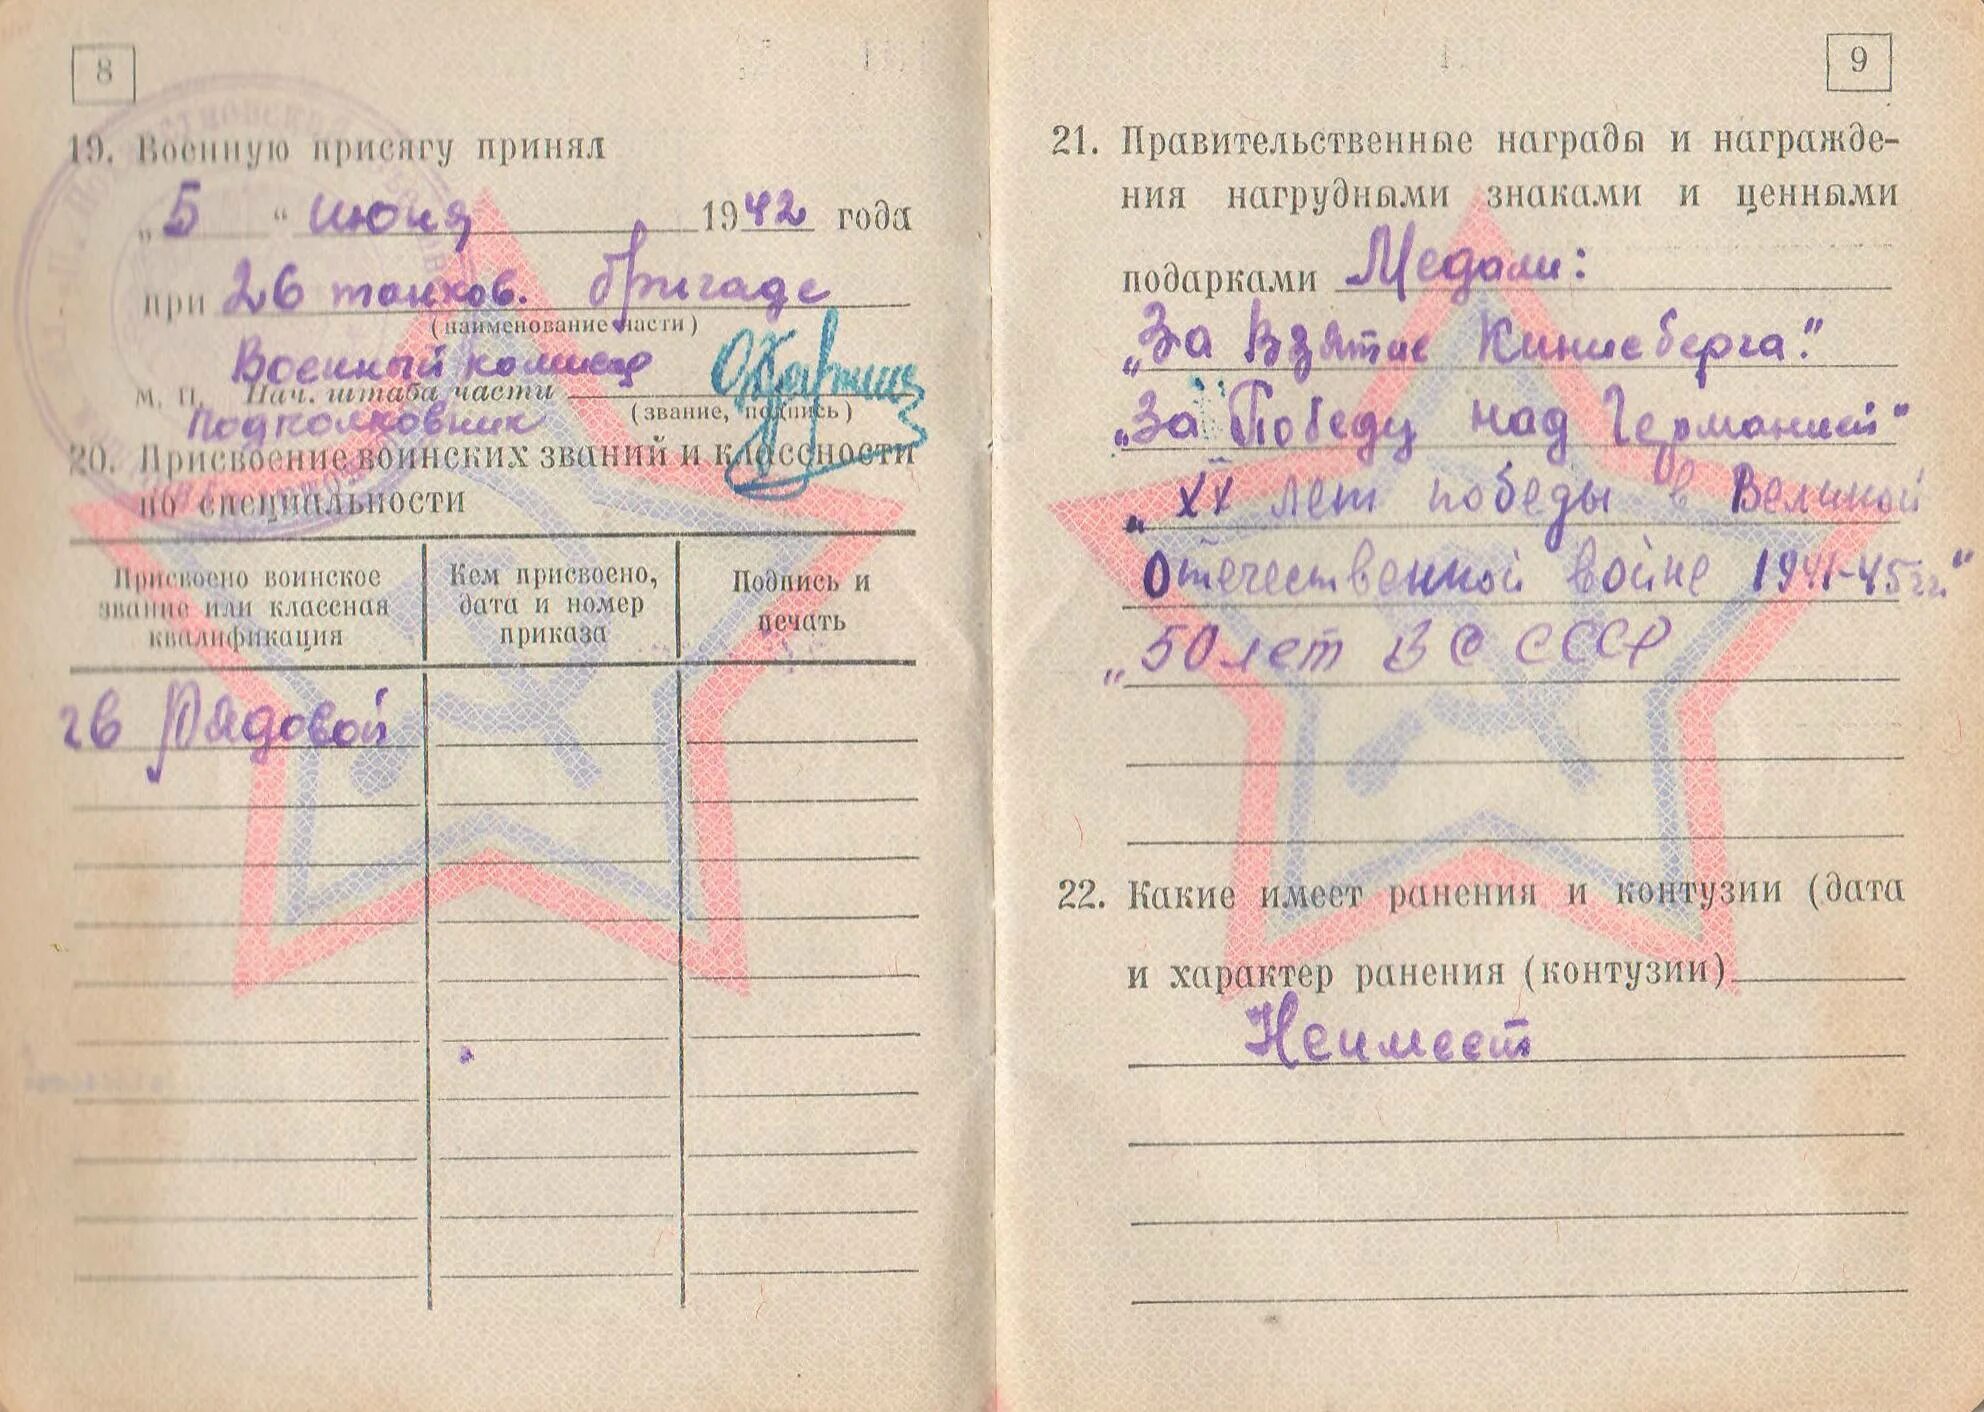 8
19. Военную присягу принял
„5" июня 1942 года
при 26 танков. бригаде
(наименование части)
Военный комиссар
М. П. Нач. штаба части
(звание, подпись)
Подполковник
20. Присвоение воинских званий и классности
по специальности
Присвоено воинское
звание или классная
квалификация
Кем присвоено,
дата и номер
приказа
Подпись и
печать
гв Рядовой
9
21. Правительственные награды и награжде-
ния нагрудными знаками и ценными
подарками Медали:
„За Взятие Кинисберга."
„За Победу над Германией"
„XX лет победы в Великой
Отечественной войне 1941-45гг."
„50 лет ВС СССР
22. Какие имеет ранения и контузии (дата
и характер ранения (контузии)
Неимеет